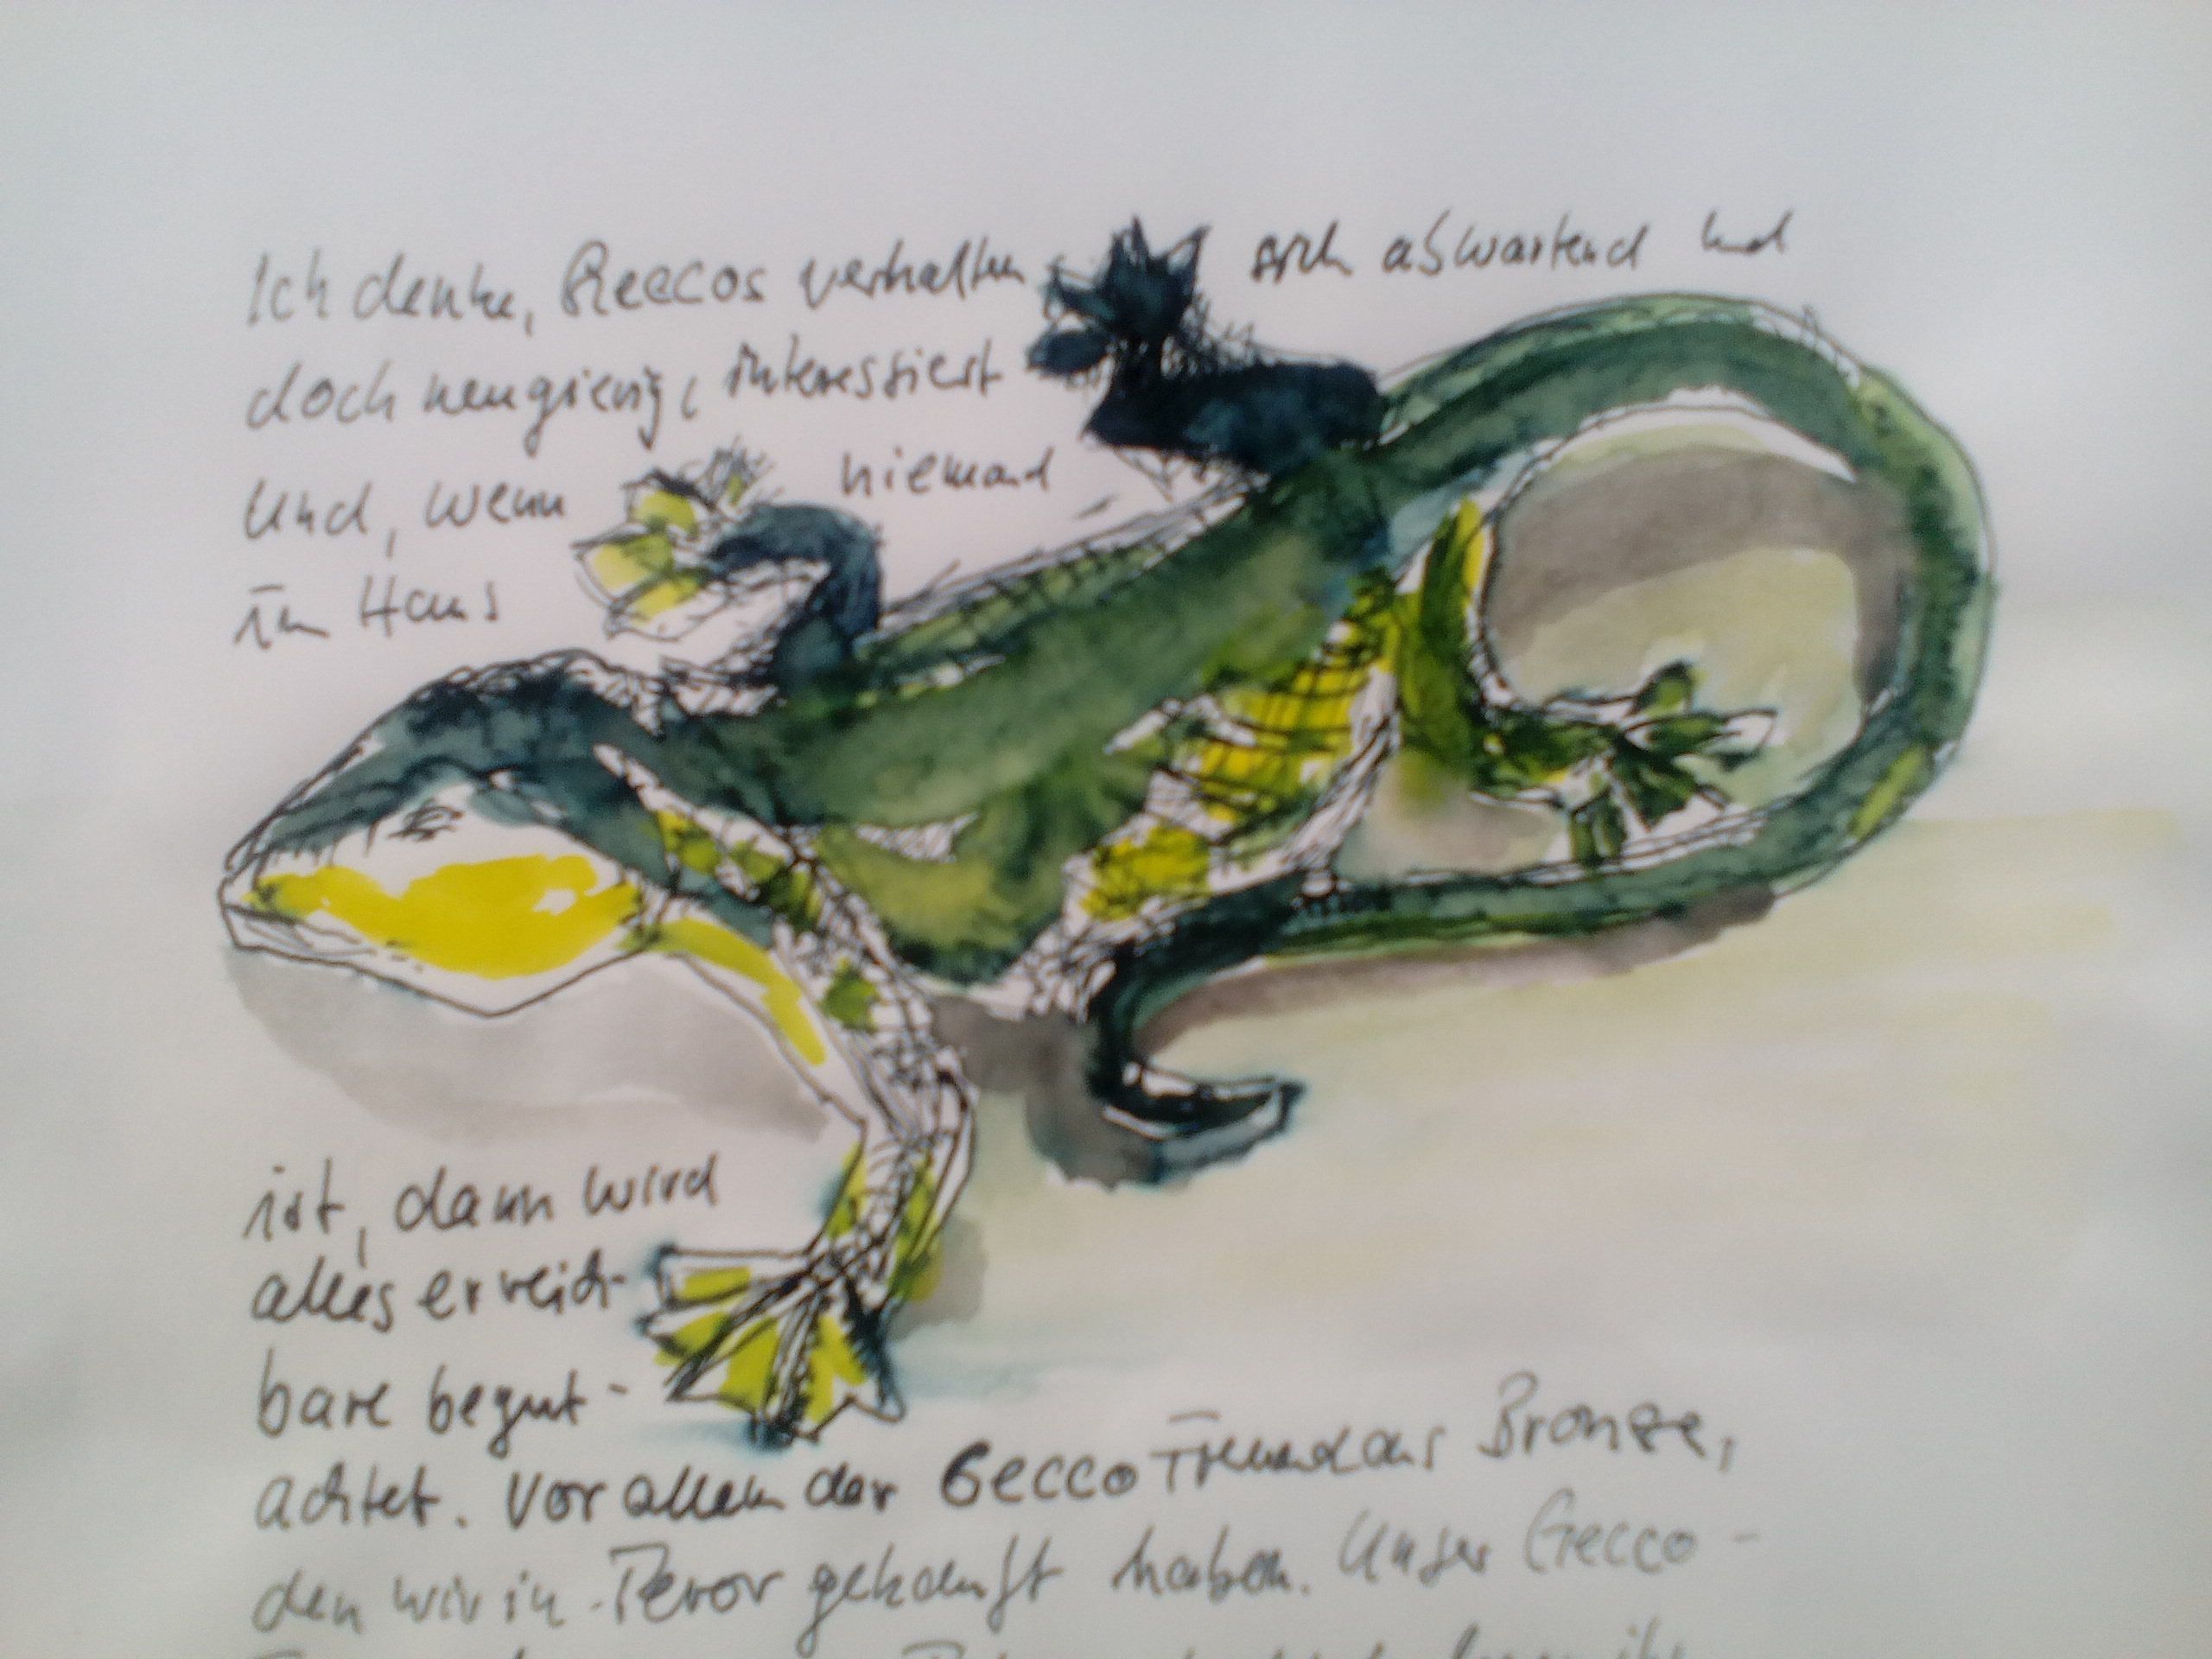 Ich denke, Geccos verhalten sich abwartend und
doch neugierig, interessiert
und, wenn niemand
im Haus
ist, dann wird
alles erreich-
bare begut-
achtet. Vor allem der Gecco Freund aus Bronze,
den wir in Teror gekauft haben. Unser Gecco-